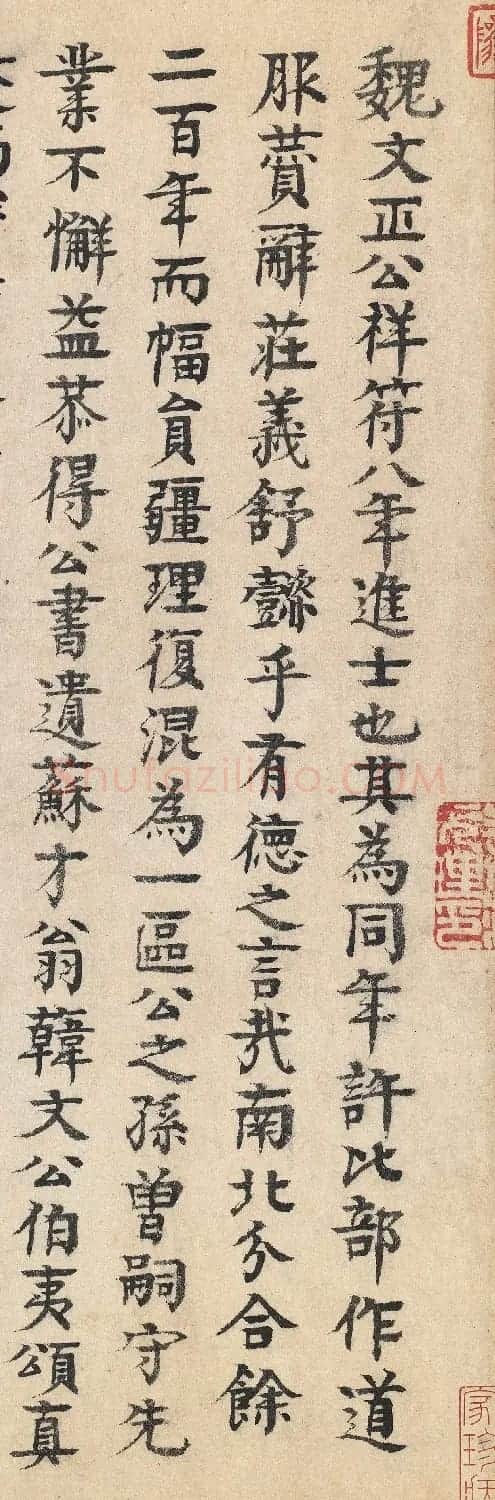 魏文正公祥符八年進士也其為同年許比部作道
服贊辭莊義舒懿乎有德之言哉南北分合餘
二百年而幅員疆理復混為一區公之孫曾嗣守先
業不懈益恭得公書遺蘇才翁韓文公伯夷頌真
shufaziliao.COM